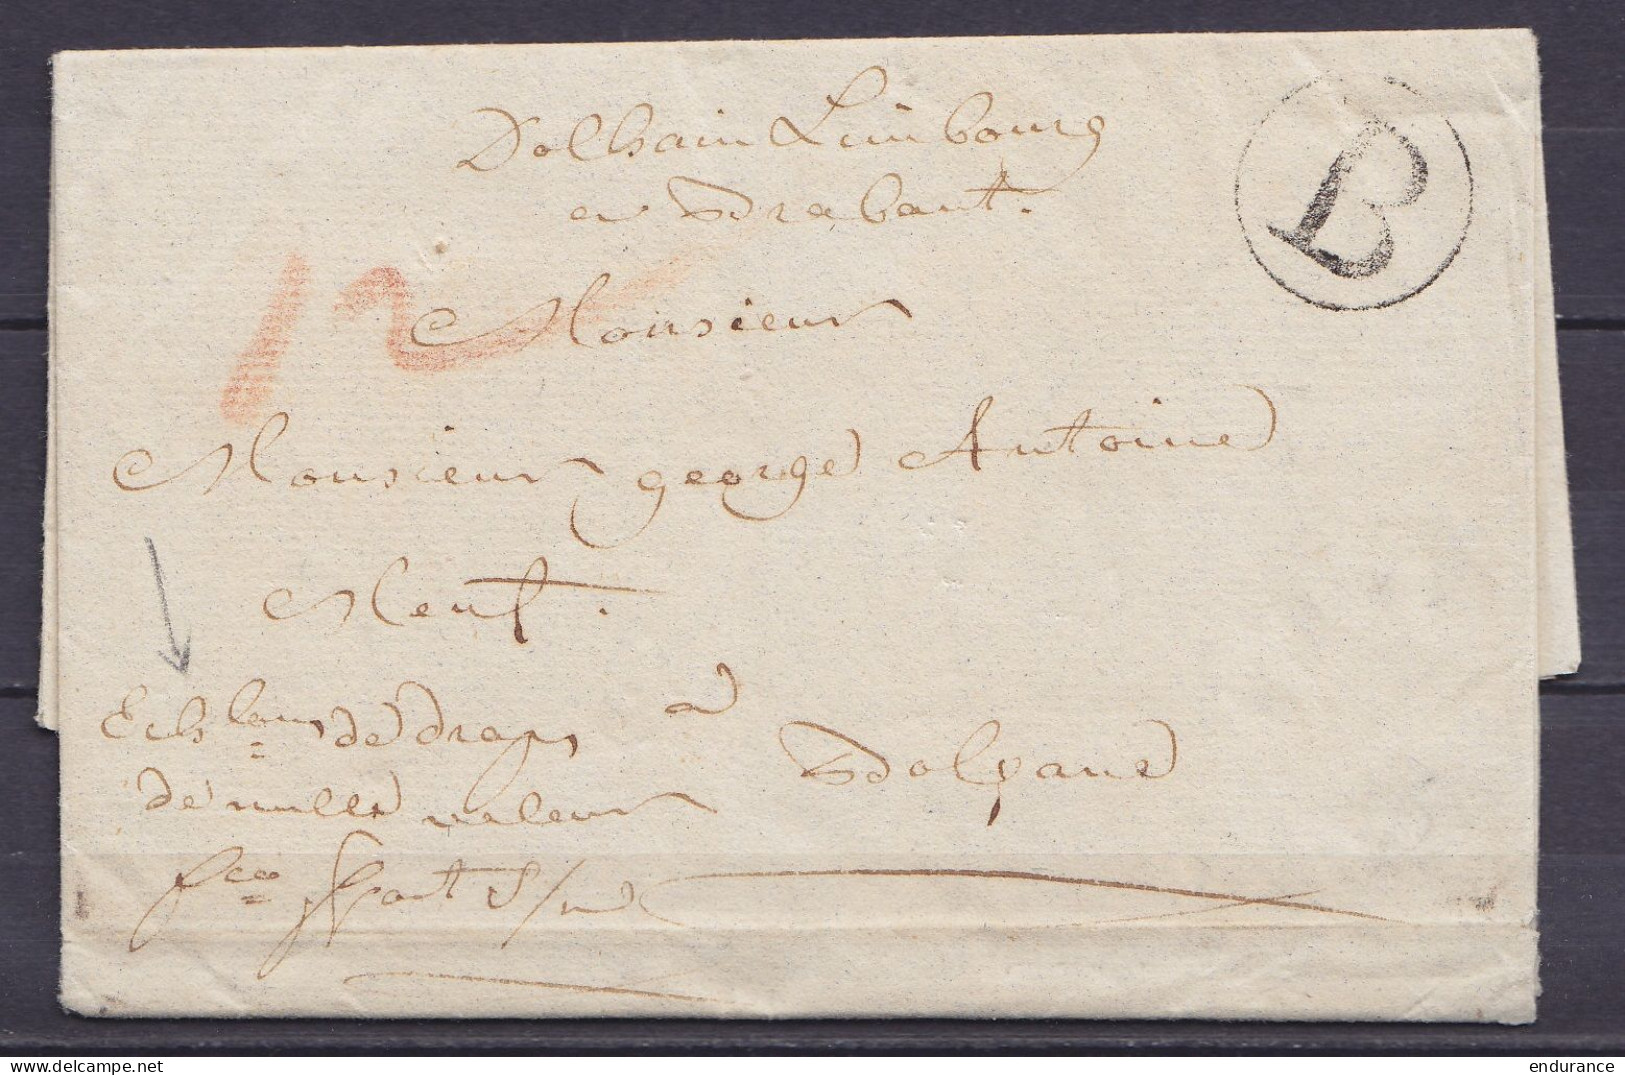 Dolhain Limbourg
en Brabant.
B
12
Monsieur
Monsieur george Antoine
Neuf.
Echlons de draps
de nulle valeur
à
Bolzane
fco
delcampe.net
endurance